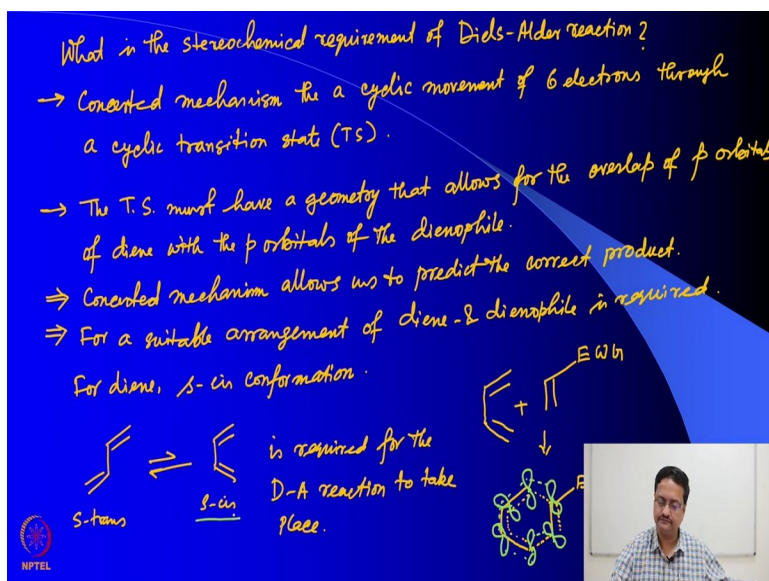 What is the stereochemical requirement of Diels-Alder reaction?
→ Concerted mechanism the a cyclic movement of 6 electrons through
a cyclic transition state (TS).
→ The T.S. must have a geometry that allows for the overlap of p orbitals
of diene with the p orbitals of the dienophile.
⇒ Concerted mechanism allows us to predict the correct product.
⇒ For a suitable arrangement of diene & dienophile is required.
For diene, s-cis conformation.
EWG
+
s-trans
s-cis
is required for the
D-A reaction to take
place.
E
NPTEL